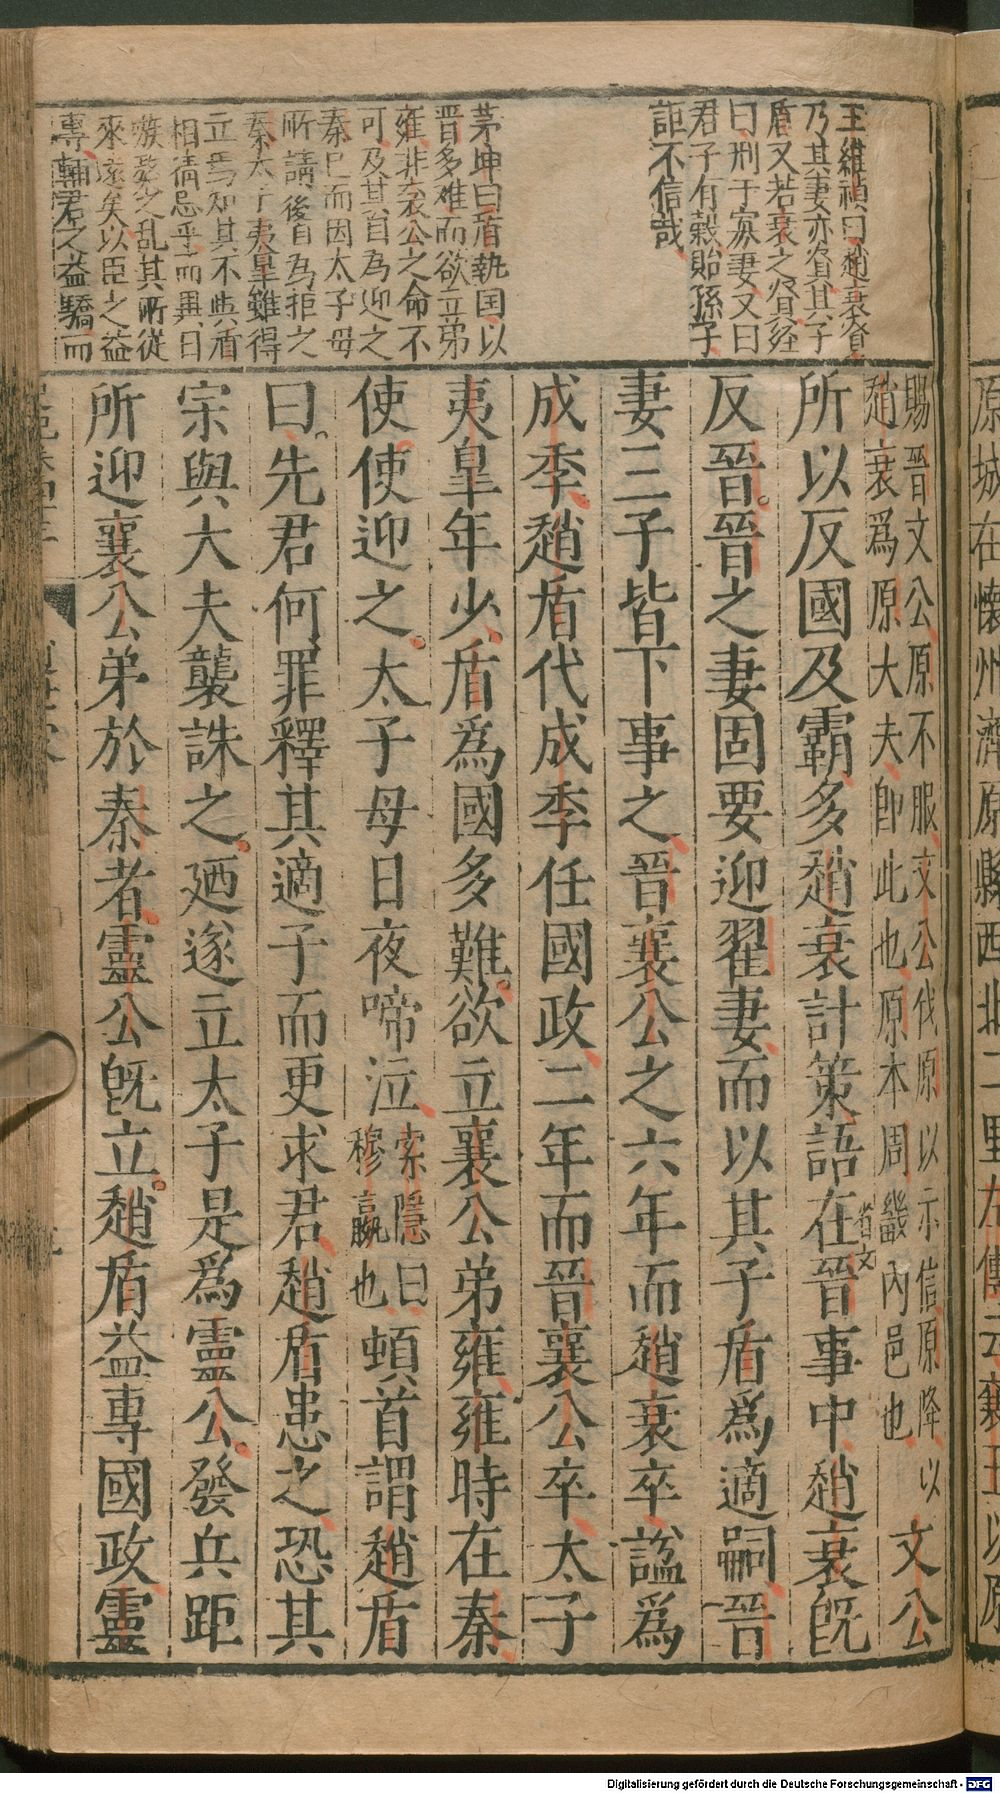 王維禎曰趙衰賢
乃其妻亦賢其子
盾又若衰之賢經
曰刑于寡妻又曰
君子有穀貽孫子
詎不信哉
茅坤曰盾執国以
晋多难而欲立弟
雍非襄公之命不
可及其自為迎之
秦已而因太子母
所請後自為拒之
秦太子夷皐雖得
立焉知其不與盾
相猜忌乎而異日
嗾獒之乱其所從
來遠矣以臣之益
專輔君之益驕而
賜晉文公原不服文公伐原以示信原降以
趙衰爲原大夫卽此也原本周畿內邑也
省文
文公
所以反國及霸多趙衰計策語在晉事中趙衰旣
反晉晉之妻固要迎翟妻而以其子盾爲適嗣晉
妻三子皆下事之晉襄公之六年而趙衰卒謚爲
成季趙盾代成季任國政二年而晉襄公卒太子
夷皐年少盾爲國多難欲立襄公弟雍雍時在秦
使使迎之太子母日夜啼泣
索隱曰
穆嬴也
頓首謂趙盾
曰先君何罪釋其適子而更求君趙盾患之恐其
宗與大夫襲誅之廼遂立太子是爲靈公發兵距
所迎襄公弟於秦者靈公旣立趙盾益專國政靈
原城在懷州濟原縣西北二里左傳云襄王以原
Digitalisierung gefördert durch die Deutsche Forschungsgemeinschaft - DFG